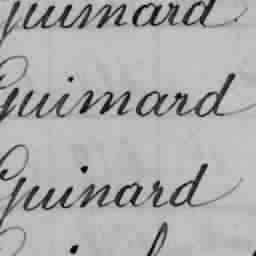 Guimard
Guimard
Guinard